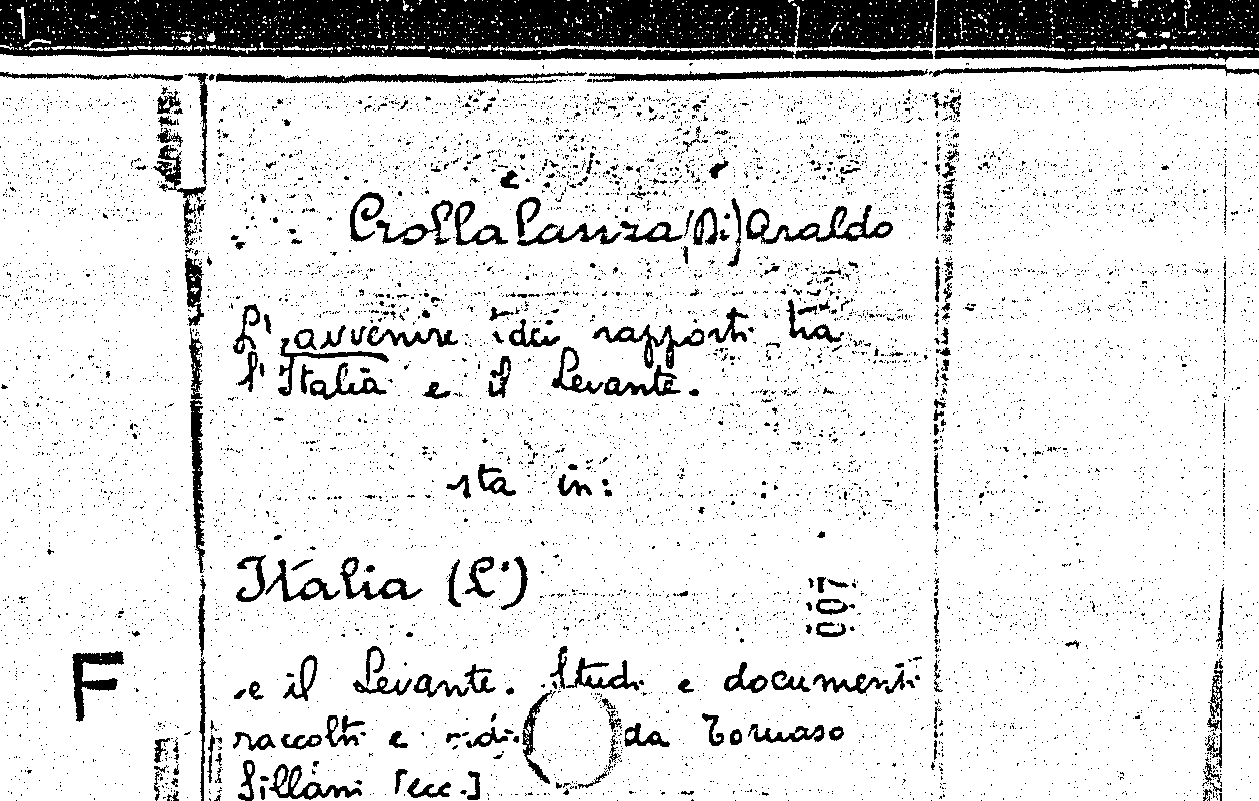 Crollalanza (Di) Araldo
L'avvenire dei rapporti tra
l'Italia e il Levante.
sta in:
Italia (L')
007
F
e il Levante. Studi e documenti
raccolti e da Tomaso
Sillani [ecc.]